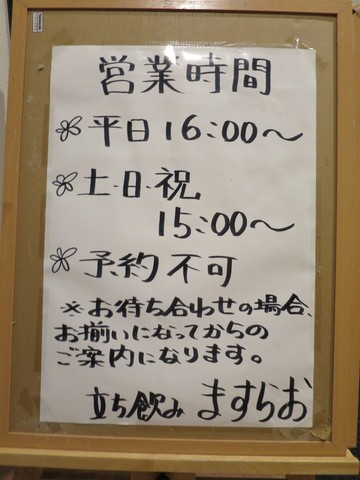 営業時間
平日16:00〜
土・日・祝
15:00〜
予約不可
※お待ち合わせの場合、
お揃いになってからの
ご案内になります。
立ち飲み ますらお